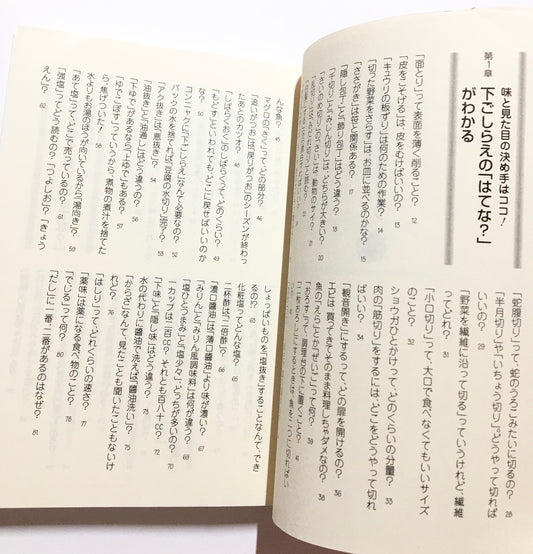 味と見た目の決め手はココ!
第1章
下ごしらえの「はてな?」
がわかる
「面とり」って表面を薄く削ること? 12
「皮をこそげる」は、皮をむけばいいの? 13
「キュウリの板ずり」は何のための作業? 14
「切った野菜をさらす」は、お皿に並べるのかな? 15
「ささがき」は笹と関係ある?
「隠し包丁」と「飾り包丁」はどう違う?
「千切り」と「みじん切り」は、どっちが大きい?
「さいの目切り」の「さい」は、動物のサイ?
「蛇腹切り」って、蛇のうろこみたいに切るの? 28
「半月切り」や「いちょう切り」、どうやって切れば
いいの? 29
「野菜を繊維に沿って切る」っていうけれど、繊維
ってどれ? 31
「小口切り」って、大口で食べなくてもいいサイズ
のこと? 32
ショウガひとかけって、どのくらいの分量? 33
肉の「筋切り」をするには、どこをどうやって切れ
ばいい? 35
「観音開き」にするって、どの扉を開けるの? 36
エビは、買ってきてそのまま料理しちゃダメなの? 38
魚の「えら」とか「ぜいご」って何? 39
「おろす」って、調理台の下に置くこと? 41
「二枚おろし」にするときは、魚を二つに切ればい
んな魚? 45
マグロの「さく」って、どの部分? 46
「追いがつお」は「戻りがつお」のシーズンが終わっ
たあとのカツオ? 47
「しばらくおく」の「しばらく」って、どのくらい? 49
「もどす」といわれても、どこに戻せばいいのか
な? 50
コンニャクに「下ごしらえ」なんて必要なの? 52
パックの水を捨てれば、「豆腐の水切り」完了? 53
「アク抜き」は悪抜き? 55
「油抜き」と「油通し」はどう違う? 56
「下ゆで」があるなら「上ゆで」もある? 58
「ゆでこぼす」っていうから、煮物の煮汁を捨てた
ら、焦げついた!
水よりもお湯のほうが向いているから「湯向き」?
「あて塩」って、どこで売っているの?
「強塩」ってどう読むの?「つよしお」?「きょう
えん」? 62
しょっぱいものを「塩抜き」することなんて、でき
るの!?
化粧塩ってどんな塩? 65
二杯酢は、「二倍酢」? 66
「濃口醤油」は「薄口醤油」より味が濃い? 68
「みりん」と「みりん風調味料」は何が違う? 67
「塩ひとつまみ」と「塩少々」、どっちが多いの? 70
一カップは二百CC?それとも百八十CC? 71
「下味」と「隠し味」はどう違う? 72
水の代わりに醤油で洗えば「醤油洗い」? 74
「からざ」なんて、見たことも聞いたこともないけ
れど? 76
「はしり」って、どれくらいの速さ? 77
「薬味」は薬になる食べ物のこと? 78
「でじる」って何? 79
「だし」に一番、二番があるのはなぜ? 81